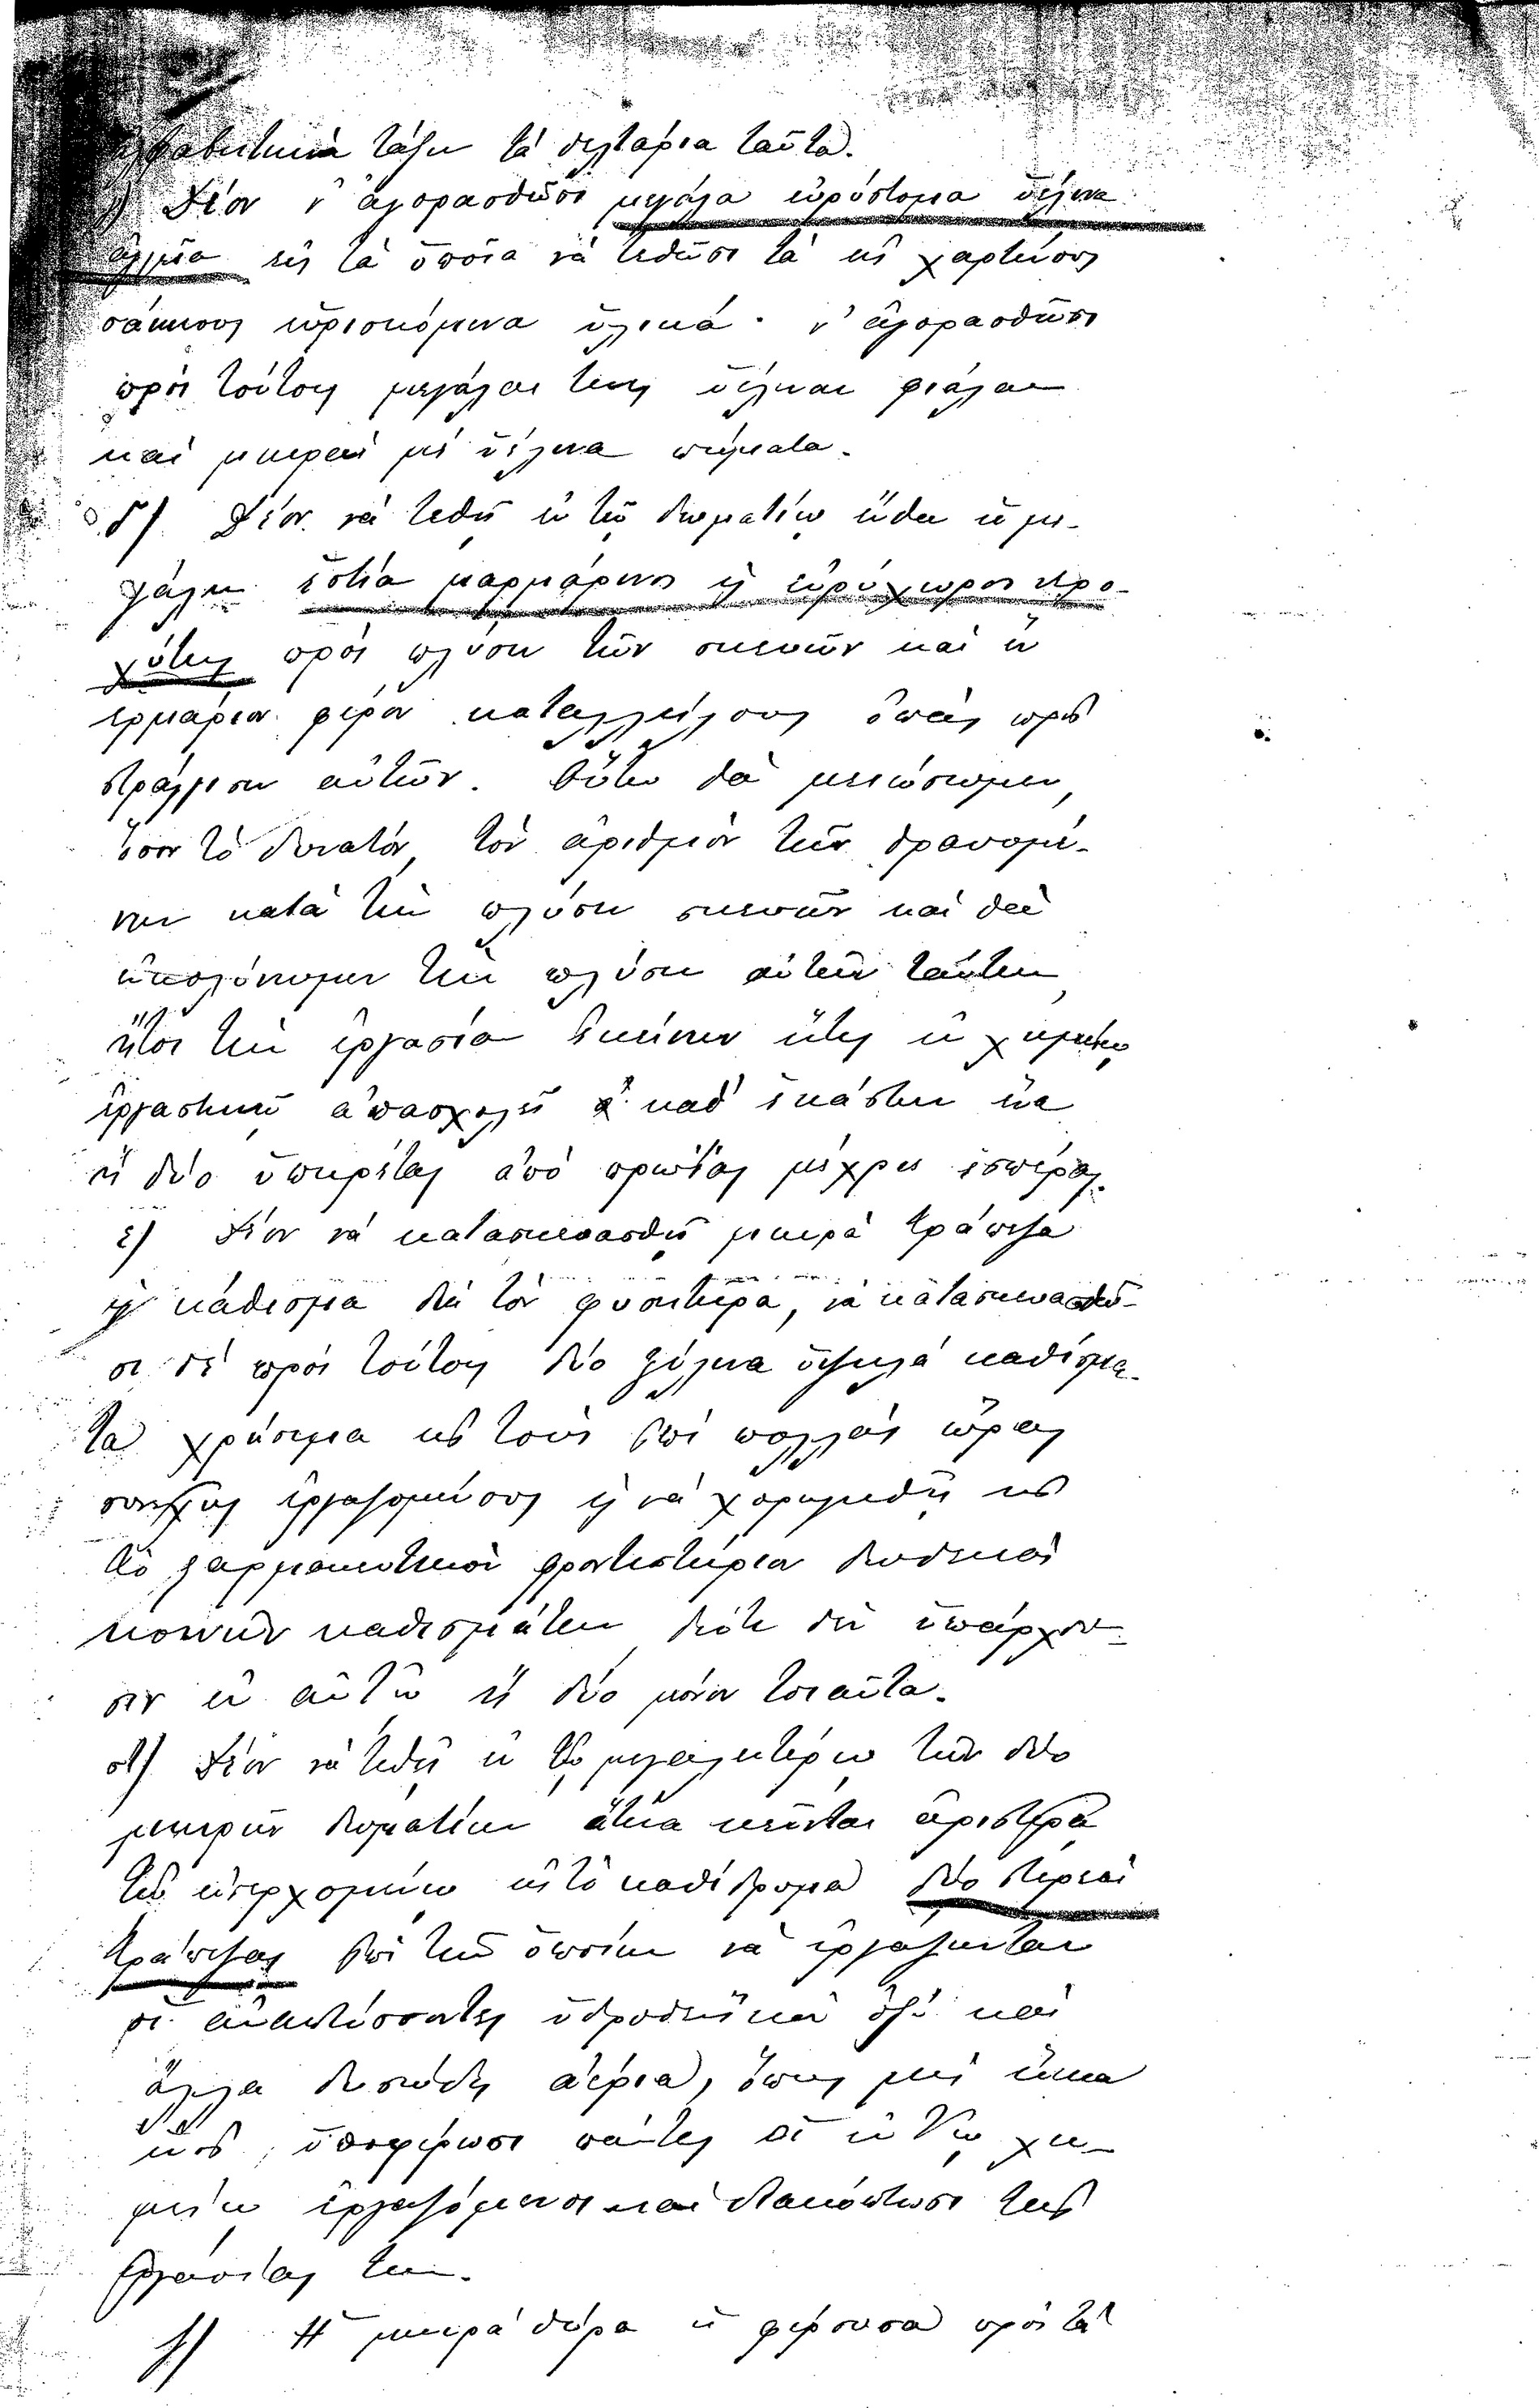 ἀλφαβητικὴν τάξιν τὰ δελτάρια ταῦτα.
γ) Δέον ν' ἀγορασθῶσι μεγάλα εὐρύστομα ὑέλινα
ἀγγεῖα εἰς τὰ ὁποῖα νὰ τεθῶσι τὰ εἰς χαρτίνους
σάκκους εὑρισκόμενα ὑλικά· ν' ἀγορασθῶσι
πρὸς τούτοις μεγάλαι τινες ὑέλιναι φιάλαι
καὶ μικραὶ μὲ ὑέλινα πώματα.
δ) Δέον νὰ τεθῇ ἐν τῷ δωματίῳ ἔνθα ἡ με-
γάλη ἑστία μαρμάρινος ἢ εὐρύχωρος προ-
χύτης πρὸς πλύσιν τῶν σκευῶν καὶ ἓν
ἑρμάριον φέρον καταλλήλους ὀπὰς πρὸς
στράγγισιν αὐτῶν. Οὕτω θὰ μειώσωμεν,
ὅσον τὸ δυνατόν, τὸν ἀριθμὸν τῶν θραυομέ-
νων κατὰ τὴν πλύσιν σκευῶν καὶ θὰ
εὐκολύνωμεν τὴν πλύσιν αὐτὴν ταύτην,
ἤτοι τὴν ἐργασίαν ἐκείνην ἥτις ἐν χημικῷ
ἐργαστηρίῳ ἀπασχολεῖ καθ' ἑκάστην ἕνα
ἢ δύο ὑπηρέτας ἀπὸ πρωΐας μέχρις ἑσπέρας.
ε) Δέον νὰ κατασκευασθῇ μικρὰ τράπεζα
ἢ κάθισμα διὰ τὸν φυσητῆρα, νὰ κατασκευασθῶ-
σι δὲ πρὸς τούτοις δύο ξύλινα ὑψηλὰ καθίσμα-
τα χρήσιμα εἰς τοὺς ἐπὶ πολλὰς ὥρας
συνεχῶς ἐργαζομένους ἢ νὰ χορηγηθῇ εἰς
τὸ φαρμακευτικὸν φροντιστήριον δωδεκὰς
κοινῶν καθισμάτων διότι δὲν ὑπάρχου-
σιν ἐν αὐτῷ ἢ δύο μόνον τοιαῦτα.
στ) Δέον νὰ τεθῇ ἐν τῷ μεγαλητέρῳ τῶν δύο
μικρῶν δωματίων ἅτινα κεῖνται ἀριστερᾷ
τῷ εἰσερχομένῳ εἰς τὸ καθίδρυμα δύο στερεαὶ
τράπεζαι ἐπὶ τῶν ὁποίων νὰ ἐργάζωνται
οἱ ἀναπτύσσοντες ὑδροθειϊκὸν ὀξὺ καὶ
ἄλλα δυσώδη ἀέρια, ὅπως μὴ ἕνεκα
ἑνὸς, ὑποφέρωσι πάντες οἱ ἐν τῷ χη-
μείῳ ἐργαζόμενοι καὶ διακόπτωσι τὰς
ἐργασίας των.
ζ) Ἡ μικρὰ θύρα ἡ φέρουσα πρὸς τὰ